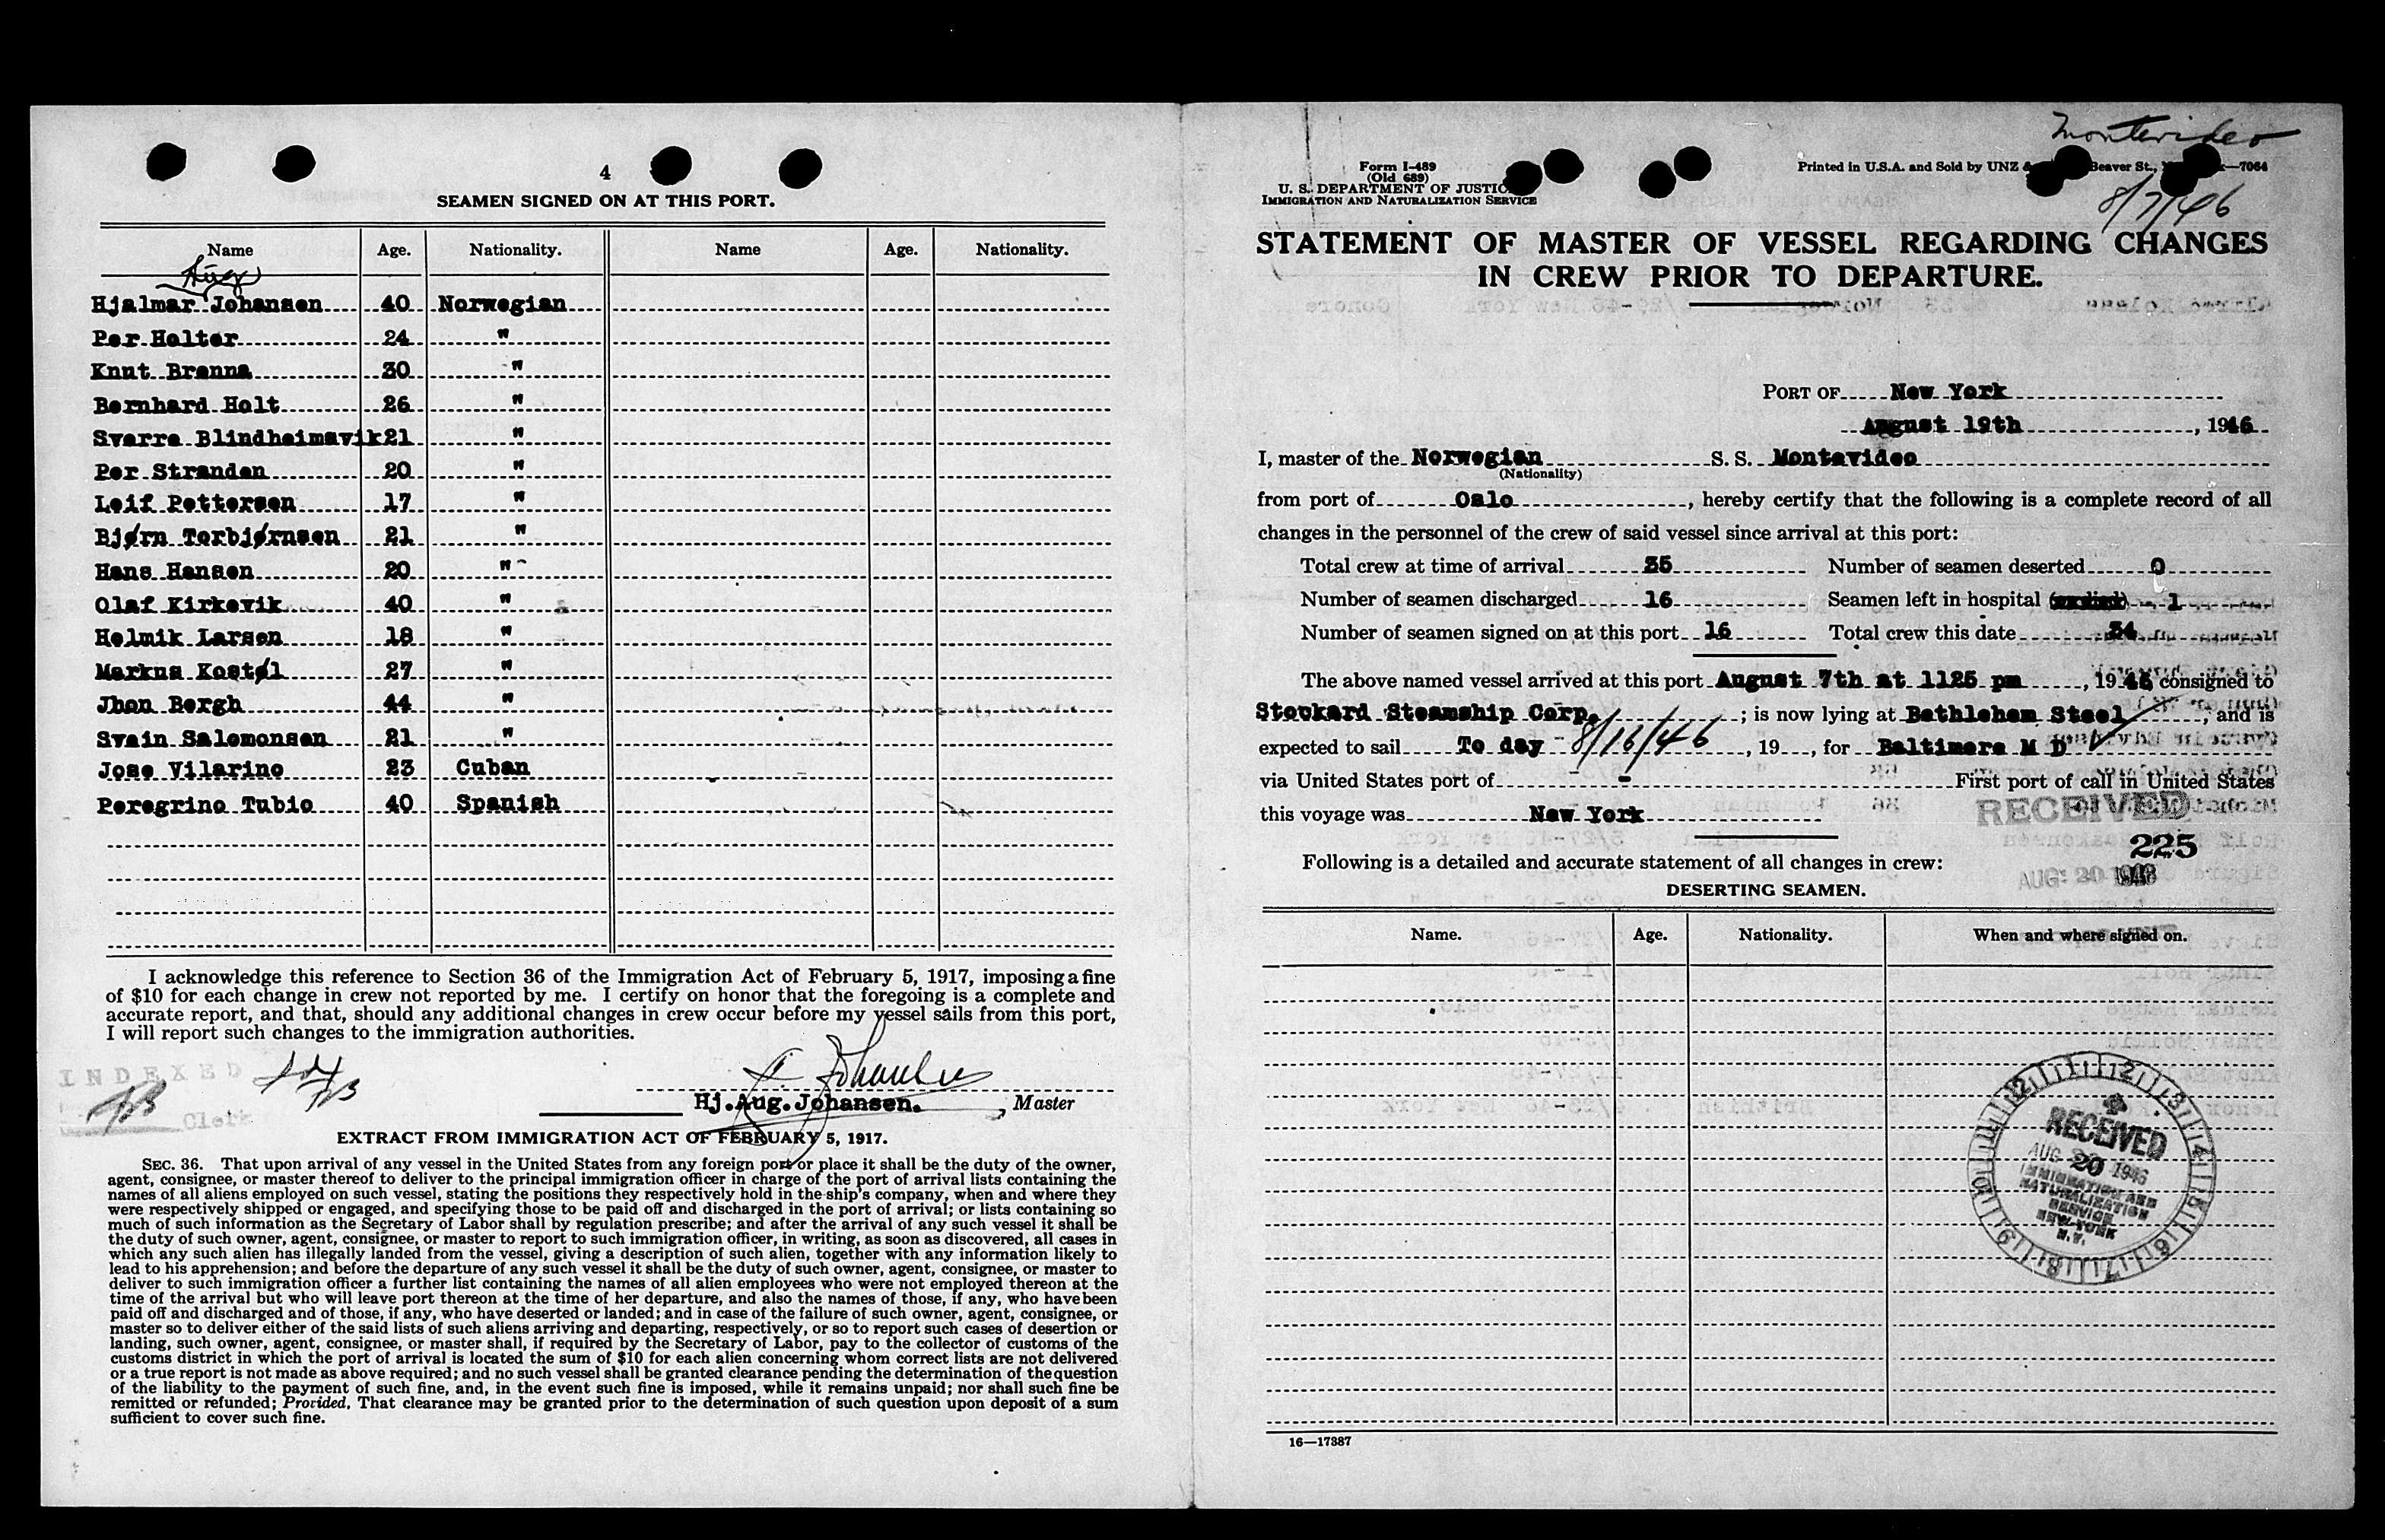 4
SEAMEN SIGNED ON AT THIS PORT.
Name Age. Nationality. Name Age. Nationality.
Aug
Hjalmar Johansen 40 Norwegian
Per Holter 24 "
Knut Brenna 30 "
Bernhard Holt 26 "
Sverre Blindheimsvik 21 "
Per Stranden 20 "
Leif Pettersen 17 "
Bjørn Torbjørnsen 21 "
Hans Hansen 20 "
Olaf Kirkevik 40 "
Helmik Larsen 18 "
Markus Kostøl 27 "
Jhon Bergh 44 "
Svein Salomonsen 21 "
Jose Vilarino 23 Cuban
Peregrino Tubio 40 Spanish
I acknowledge this reference to Section 36 of the Immigration Act of February 5, 1917, imposing a fine
of $10 for each change in crew not reported by me. I certify on honor that the foregoing is a complete and
accurate report, and that, should any additional changes in crew occur before my vessel sails from this port,
I will report such changes to the immigration authorities.
INDEXED
Clerk
Johansen
Hj.Aug.Johansen. , Master
EXTRACT FROM IMMIGRATION ACT OF FEBRUARY 5, 1917.
SEC. 36. That upon arrival of any vessel in the United States from any foreign port or place it shall be the duty of the owner,
agent, consignee, or master thereof to deliver to the principal immigration officer in charge of the port of arrival lists containing the
names of all aliens employed on such vessel, stating the positions they respectively hold in the ship's company, when and where they
were respectively shipped or engaged, and specifying those to be paid off and discharged in the port of arrival; or lists containing so
much of such information as the Secretary of Labor shall by regulation prescribe; and after the arrival of any such vessel it shall be
the duty of such owner, agent, consignee, or master to report to such immigration officer, in writing, as soon as discovered, all cases in
which any such alien has illegally landed from the vessel, giving a description of such alien, together with any information likely to
lead to his apprehension; and before the departure of any such vessel it shall be the duty of such owner, agent, consignee, or master to
deliver to such immigration officer a further list containing the names of all alien employees who were not employed thereon at the
time of the arrival but who will leave port thereon at the time of her departure, and also the names of those, if any, who have been
paid off and discharged and of those, if any, who have deserted or landed; and in case of the failure of such owner, agent, consignee, or
master so to deliver either of the said lists of such aliens arriving and departing, respectively, or so to report such cases of desertion or
landing, such owner, agent, consignee, or master shall, if required by the Secretary of Labor, pay to the collector of customs of the
customs district in which the port of arrival is located the sum of $10 for each alien concerning whom correct lists are not delivered
or a true report is not made as above required; and no such vessel shall be granted clearance pending the determination of the question
of the liability to the payment of such fine, and, in the event such fine is imposed, while it remains unpaid; nor shall such fine be
remitted or refunded; Provided, That clearance may be granted prior to the determination of such question upon deposit of a sum
sufficient to cover such fine.
Montevideo
Form I-489
(Old 689)
U. S. DEPARTMENT OF JUSTICE
IMMIGRATION AND NATURALIZATION SERVICE
Printed in U.S.A. and Sold by UNZ & Beaver St., —7064
8/7/46
STATEMENT OF MASTER OF VESSEL REGARDING CHANGES
IN CREW PRIOR TO DEPARTURE.
PORT OF New York
August 19th , 1946
I, master of the Norwegian S. S. Montevideo
(Nationality)
from port of Oslo , hereby certify that the following is a complete record of all
changes in the personnel of the crew of said vessel since arrival at this port:
Total crew at time of arrival 35 Number of seamen deserted 0
Number of seamen discharged 16 Seamen left in hospital 1
Number of seamen signed on at this port 16 Total crew this date 34
The above named vessel arrived at this port August 7th at 1125 pm , 1946 consigned to
Stockard Steamship Corp. ; is now lying at Bethlehem Steel , and is
expected to sail To day 8/16/46 , 19 , for Baltimore M D
via United States port of - First port of call in United States
this voyage was New York
RECEIVED
225
AUG 20 1946
Following is a detailed and accurate statement of all changes in crew:
DESERTING SEAMEN.
Name. Age. Nationality. When and where signed on.
RECEIVED
AUG 20 1946
IMMIGRATION AND
NATURALIZATION
SERVICE
NEW YORK
N.Y.
16—17387